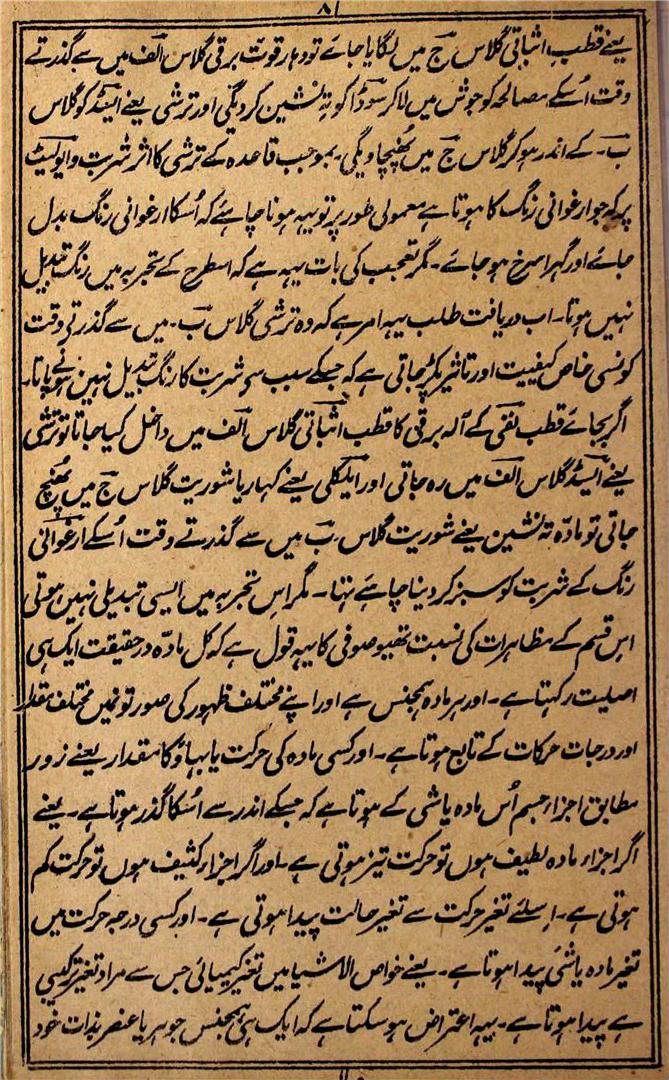 ۸۱
یعنے قطب اثباتی گلاس جؔ میں لگایا جائے تو دہار قوت برقی گلاس الفؔ میں سے گذرتے
وقت اُسکے مصالحہ کو جوش میں لاکر سوڈا کو تہ نشین کردیگی اور ترشی یعنے ایسڈ کو گلاس
بؔ۔ کے اندر ہوکر گلاس جؔ میں پُھنچاویگی۔ بموجب قاعدہ کے ترشی کا اثر شربت وایولیٹ
پر کہ جو ارغوانی رنگ کا ہوتا ہے معمولی طور پر تو یہہ ہونا چاہئے کہ اُسکا ارغوانی رنگ بدل
جائے اور گہرا سرخ ہو جائے۔ مگر تعجب کی بات یہہ ہے کہ اسطرح کے تجربہ میں رنگ تبدیل
نہیں ہوتا۔ اب دریافت طلب یہہ امر ہے کہ وہ ترشی گلاس بؔ۔ میں سے گذرتی وقت
کونسی خاص کیفیت اور تاثیر پکڑ جاتی ہے کہ جسکے سبب سی شربت کا رنگ تبدیل نہین ہونے پاتا۔
اگر بجائے قطب نفی کے آلہ برقی کا قطب اثباتی گلاس الفؔ میں داخل کیا جاتا تو ترشی
یعنے ایسڈ گلاس الفؔ میں رہ جاتی اور ایلکلی یعنے کہار یا شوریت گلاس جؔ میں پُھنچ
جاتی تو مادّہ تہ نشین یعنے شوریت گلاس بؔ میں سے گذرتے وقت اُسکے ارغوانی
رنگ کے شربت کو سبز کر دینا چاہئے تہا۔ مگر اِس تجربہ میں ایسی تبدیلی نہین ہوتی
اِس قسم کے مظاہرات کی نسبت تھیوصوفی کا یہہ قول ہے کہ کل مادّہ در حقیقت ایک ہی
اصلیت رکہتا ہے۔ اور ہر مادہ ہمجنس ہے اور اپنے مختلف ظہور کی صورتونمیں مختلف مقدار
اور درجات حرکات کے تابع ہوتا ہے۔ اور کسی مادہ کی حرکت یا بہاؤ کا مقدار یعنے زور
مطابق اجزاء جسم اُس مادہ یا شی کے ہوتا ہے کہ جسکے اندر سے اُسکا گذر ہوتا ہے۔ یعنے
اگر اجزاء مادہ لطیف ہوں تو حرکت تیز ہوتی ہے۔ اور اگر اجزاء کثیف ہوں تو حرکت کم
ہوتی ہے۔ اِسلئے تغیر حرکت سے تغیر حالت پیدا ہوتی ہے۔ اور کسی درجہ حرکت میں
تغیر مادہ یا شئی پیدا ہوتا ہے۔ یعنے خواص الاشیا میں تغیر کیمیائی جس سے مراد تغیر ترکیبی
ہے پیدا ہوتا ہے۔ یہہ اعتراض ہو سکتا ہے کہ ایک ہی ہمجنس جوہر یا عنصر بذات خود